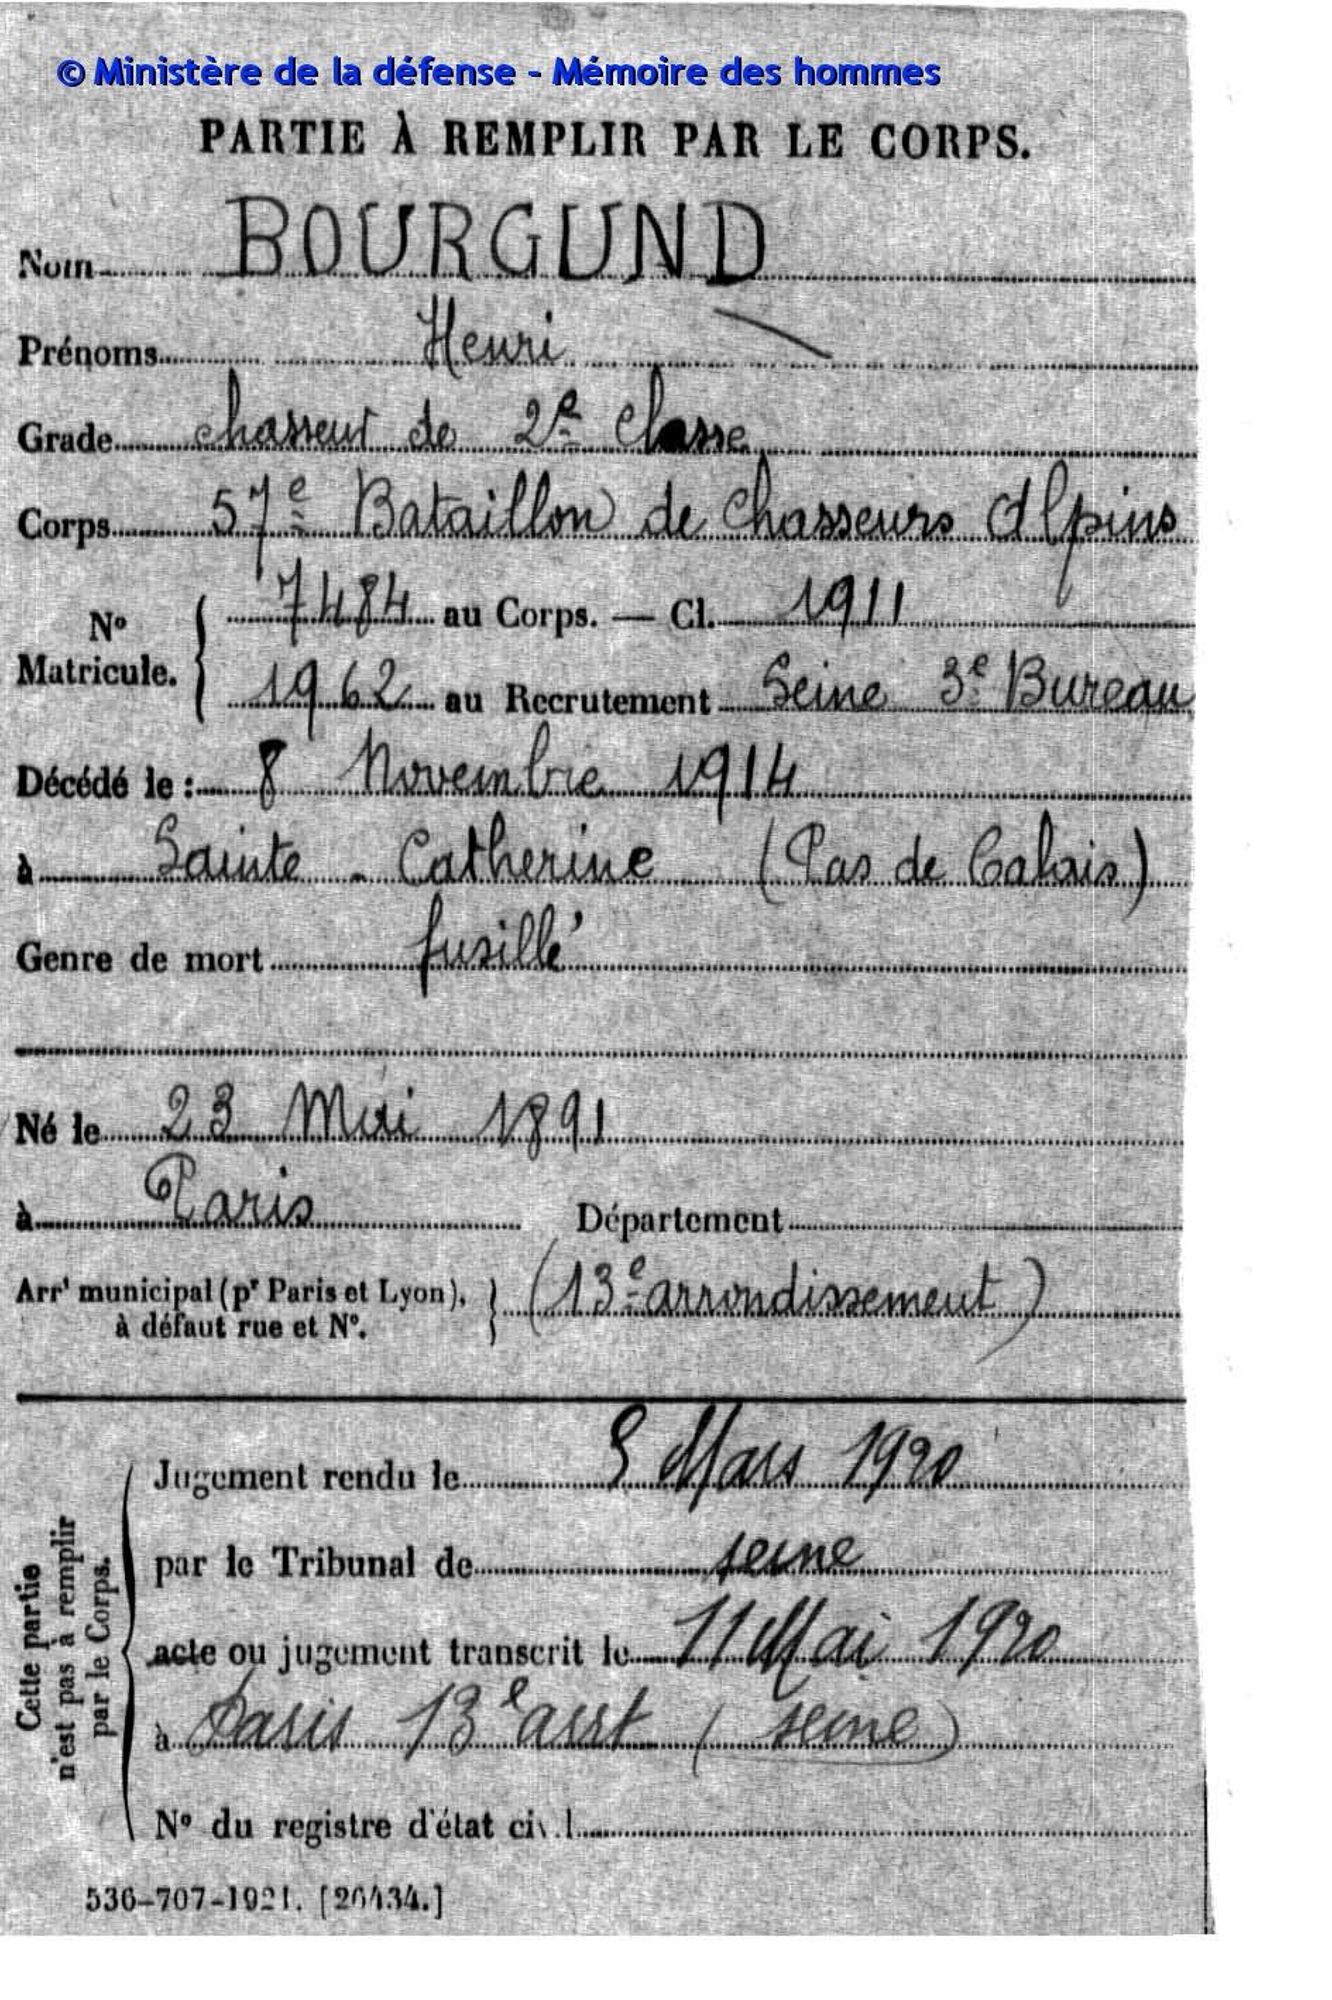 © Ministère de la défense - Mémoire des hommes
PARTIE À REMPLIR PAR LE CORPS.
Nom BOURGUND
Prénoms Henri
Grade chasseur de 2e classe
Corps 57e Bataillon de chasseurs Alpins
No Matricule. { 7484 au Corps. — Cl. 1911
1962 au Recrutement Seine 3e Bureau
Décédé le : 8 Novembre 1914
à Sainte - Catherine (Pas de Calais)
Genre de mort fusillé
Né le 23 Mai 1891
à Paris Département
Arrt municipal (pr Paris et Lyon), } (13e arrondissement)
à défaut rue et No.
Cette partie
n'est pas à remplir
par le Corps.
Jugement rendu le 5 Mars 1920
par le Tribunal de seine
acte ou jugement transcrit le 11 Mai 1920
à Paris 13e arrt (seine)
No du registre d'état civil
536-707-1921. [26434.]